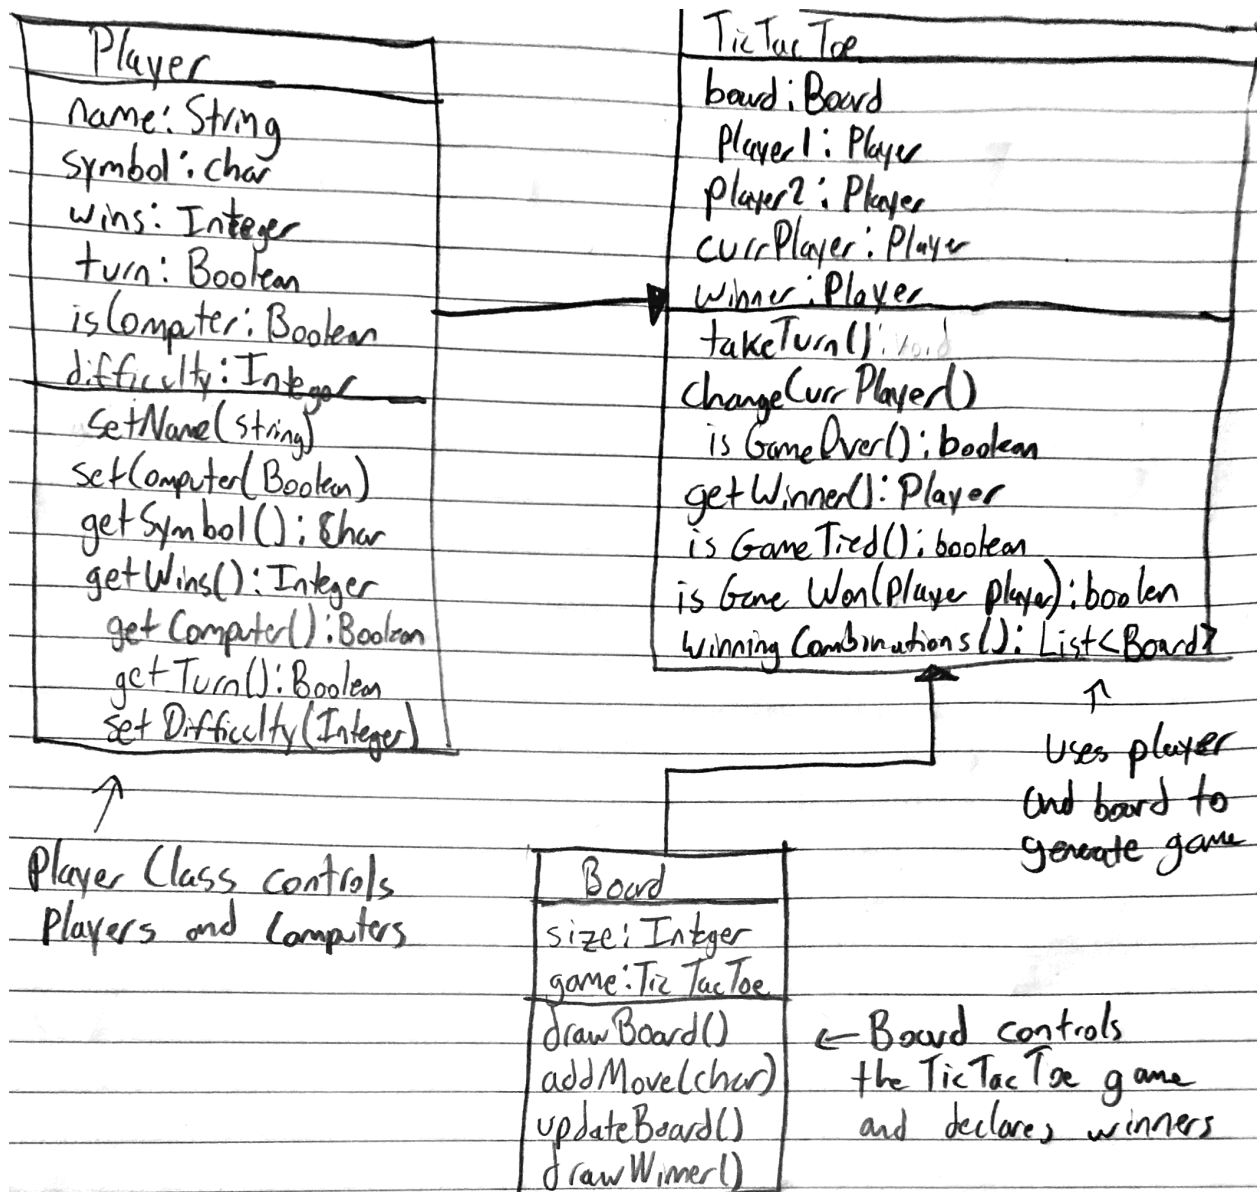 Player
name: String
symbol: char
wins: Integer
turn: Boolean
isComputer: Boolean
difficulty: Integer
setName(String)
setComputer(Boolean)
getSymbol(): Char
getWins(): Integer
getComputer(): Boolean
getTurn(): Boolean
setDifficulty(Integer)
Player Class controls
Players and Computers
TicTacToe
board: Board
Player1: Player
player2: Player
currPlayer: Player
winner: Player
takeTurn(): void
changeCurrPlayer()
isGameOver(): boolean
getWinner(): Player
isGameTied(): boolean
isGameWon(Player player): boolen
winningCombinations(): List<Board>
uses player
and board to
generate game
Board
size: Integer
game: TicTacToe
drawBoard()
addMove(char)
updateBoard()
drawWinner()
← Board controls
the TicTacToe game
and declares winners